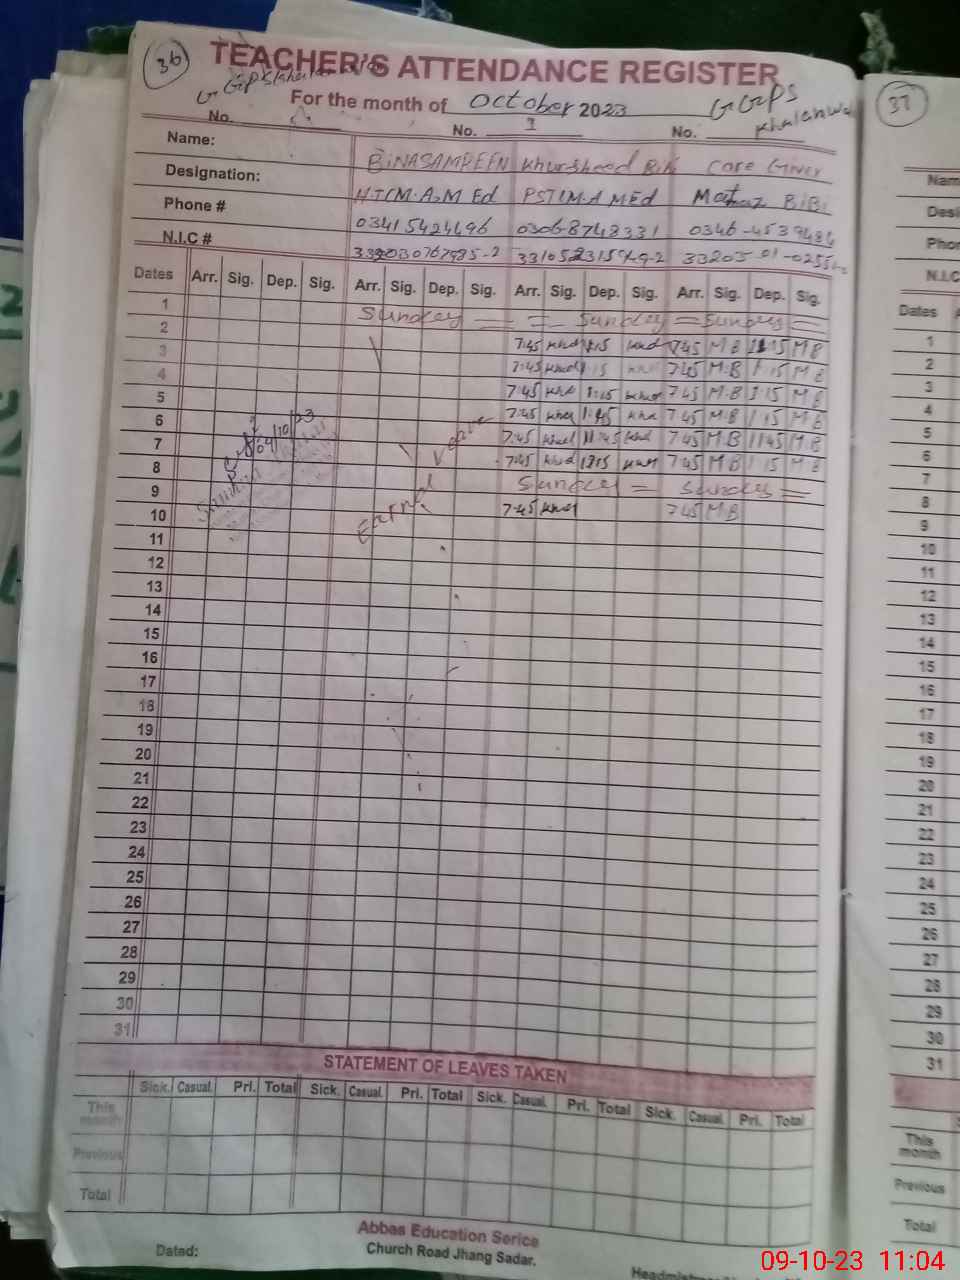 36
TEACHER'S ATTENDANCE REGISTER
For the month of October 2023
GGPS
No. No. 1 No.
Name: BiNASAMREEN Khursheed Bibi Care Giver
Designation: HT(M.A,M Ed PST(M.A MEd Momtaz BiBi
Phone # 03415424496 0306-8748331 0346-4539484
N.I.C #
Dates Arr. Sig. Dep. Sig. Arr. Sig. Dep. Sig. Arr. Sig. Dep. Sig. Arr. Sig. Dep. Sig.
1 Sunday = = Sunday = Sunday =
2 7:45 khd 1:15 khd 7:45 M B 1:15 M B
3 7:45 khd 1:15 7:45 M.B 1:15 M B
4 7:45 khd 1:15 khd 7:45 M.B 1:15 M B
5 7:45 khd khd 7:45 M.B 1:15 M B
6 7:45 khd 11:45 khd 7:45 M.B 1145 M B
7 7:45 khd khd 7:45 M B 1:15 M B
8 Sunday = Sunday =
9 7:45 khd 7:45 M.B
10
Earned Leave
04/10/23
11
12
13
14
15
16
17
18
19
20
21
22
23
24
25
26
27
28
29
30
31
STATEMENT OF LEAVES TAKEN
Sick. Casual. Pri. Total Sick. Casual. Pri. Total Sick. Casual. Pri. Total Sick. Casual. Pri. Total
This month
Previous
Total
Abbas Education Serice
Church Road Jhang Sadar.
Dated:
37
Name
Dates
1
2
3
4
5
6
7
8
9
10
11
12
13
14
15
16
17
18
19
20
21
22
23
24
25
26
27
28
29
30
31
This month
Previous
Total
09-10-23 11:04